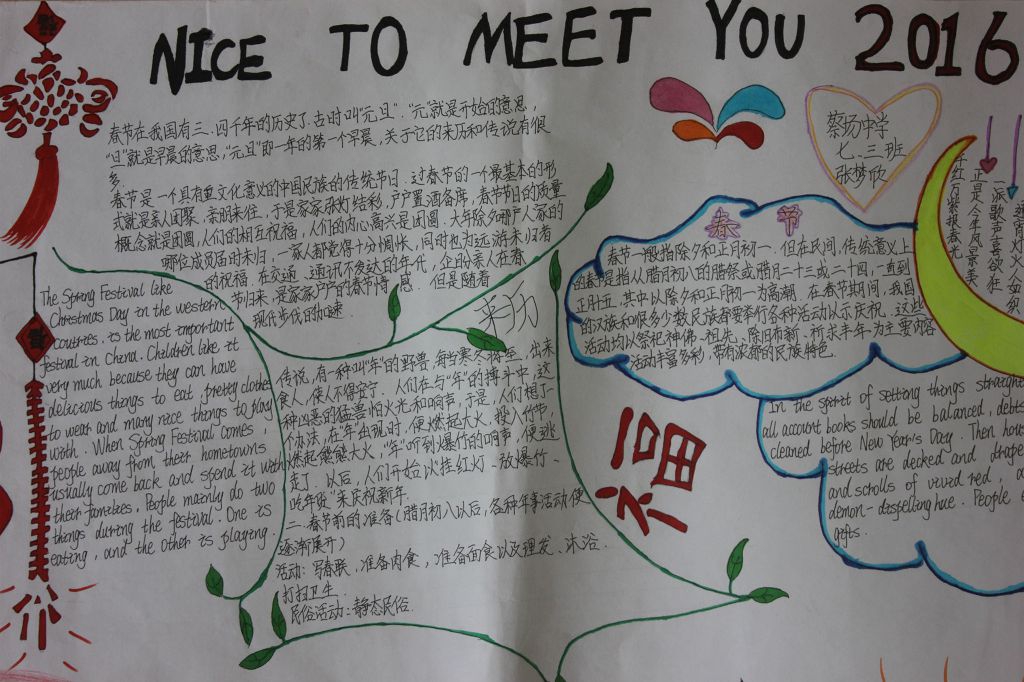 NICE TO MEET YOU 2016
春节在我国有三、四个年的历史了.古时叫“元旦”.“元”就是开始的意思,
“旦”就是早晨的意思,“元旦”即一年的第一个早晨.关于它的来历和传说有很
多.
春节是一个具有重文化意义的中国民族的传统节日.过春节的一个最基本的形
式就是亲人团聚、亲朋来往,于是家家张灯结彩,户户置酒备席,春节节日的质量
概念就是团圆,人们的相互祝福,人们的内心高兴是团圆.大年除夕哪户人家的
哪位成员届时未归,一家人都觉得十分惆怅,同时也为远游未归者
的祝福.在交通、通讯不发达的年代,企盼亲人在春
节归来,是家家户户的春节情感.但是随着
现代步伐的加速
The Spring Festival like
Christmas Day in the western
countries, is the most important
festival in China. Children like it
very much because they can have
delicious things to eat, pretty clothes
to wear and many nice things to play
worth. When Spring Festival comes,
people away from their hometowns
usually come back and spend it with
their families, People mainly do two
things during the festival. One is
eating, and the other is playing.
传说,有一种叫“年”的野兽,每当寒冬将至,出来
食人,使人不得安宁.人们在与“年”的搏斗中,这
种凶恶的猛兽怕火光和响声,于是,人们想了一
个办法,在“年”出现时,便燃起大火,投入竹节,
燃起熊熊大火,“年”听到爆竹的响声,便逃
走了.以后,人们开始以挂红灯、放爆竹、
吃年货”来庆祝新年.
二、春节前的准备(腊月初八以后,各种年事活动便
逐渐展开)
活动:写春联,准备肉食,准备面食以及理发、沐浴、
打扫卫生.
民俗活动:静态民俗.
蔡场中学
七、三班
张梦欣
春节
春节一般指除夕和正月初一.但在民间,传统意义上
的春节是指从腊月初八的腊祭或腊月二十三或二十四,一直到
正月十五,其中以除夕和正月初一为高潮.在春节期间,我国
的汉族和很多少数民族都要举行各种活动以示庆祝.这些
活动均以祭祀神佛、祖先、除旧布新、祈求丰年为主要内容
活动丰富多彩,带有浓郁的民族特色.
福
一派歌声喜欲狂
正是今年风景美
千红万紫报春光
In the spirit of setting things straight
all account books should be balanced, debts
cleaned before New Year's Day. Then hou
streets are decked and drape
and scrolls of vivid red, a
demon-dispelling hue. People
gifts.